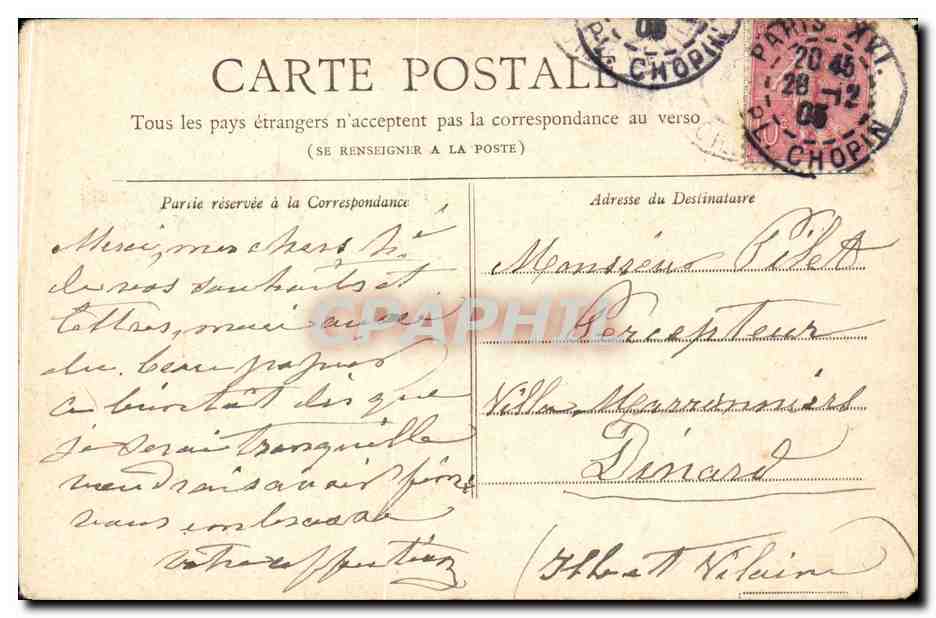 CARTE POSTALE
Tous les pays étrangers n'acceptent pas la correspondance au verso
(SE RENSEIGNER A LA POSTE)
PL. CHOPIN
05
PARIS XVI.
20 45
28 -12
05
PL. CHOPIN
Partie réservée à la Correspondance
Merci, mes chers
de vos souhaits et
lettres, merci aussi
du beau papier
à bientôt dès que
je serai tranquille
vous embrasse
votre affection
Adresse du Destinataire
Monsieur Pilet
Percepteur
Villa Marronniers
Dinard
(Ille et Vilaine
CPAPHIL